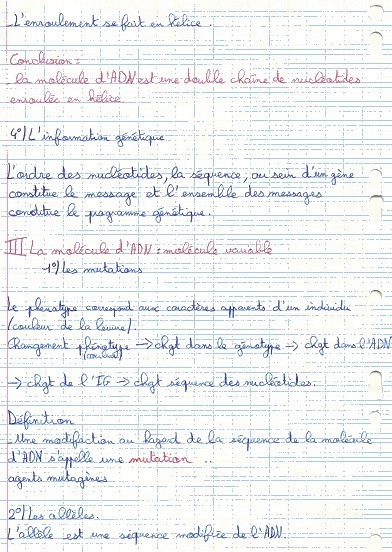 _L'enroulement se fait en hélice.
Conclusion :
_ la molécule d'ADN est une double chaîne de nucléotides
enroulée en hélice
4°/ L'information génétique
L'ordre des nucléotides, la séquence, au sein d'un gène
constitue le message et l'ensemble des messages
constitue le programme génétique.
III La molécule d'ADN : molécule variable
1°/ Les mutations
Le phénotype correspond aux caractères apparents d'un individu
(couleur de la levure)
Changement phénotype → chgt dans le génotype → chgt dans l'ADN
(couleur)
→ chgt de l'IG → chgt séquence des nucléotides.
Définition
_Une modifaction au hazard de la séquence de la molécule
d'ADN s'appelle une mutation ..
agents mutagènes
2°/ Les allèles.
L'allèle est une séquence modifiée de l'ADN.